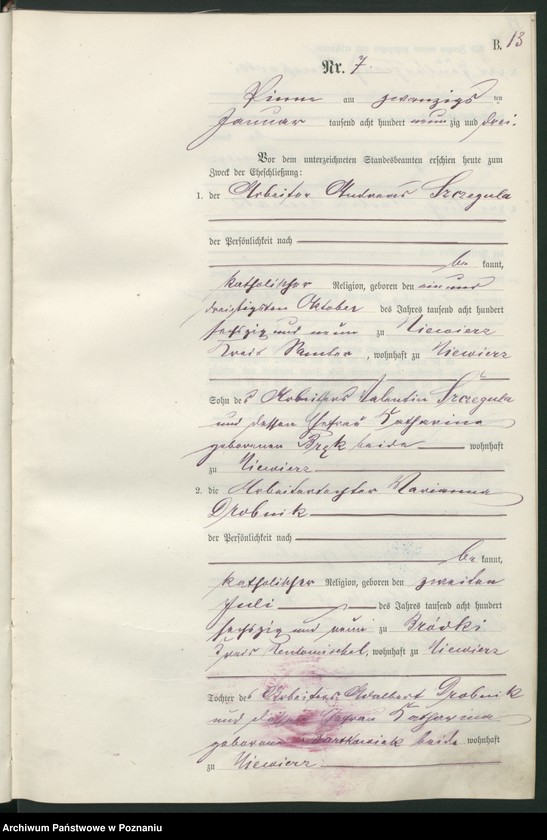 B. 13
Nr. 7.
Pinne am zwanzigsten
Januar tausend acht hundert neunzig und drei.
Vor dem unterzeichneten Standesbeamten erschien heute zum
Zweck der Eheschließung:
1. der Arbeiter Andreas Szczegula
der Persönlichkeit nach
bekannt,
katholischer Religion, geboren den ein und
dreißigsten Oktober des Jahres tausend acht hundert
sechszig und neun zu Niewierz
Kreis Samter, wohnhaft zu Niewierz
Sohn des Arbeiters Valentin Szczegula
und dessen Ehefrau Katharina
geborenen Bręk beide wohnhaft
zu Niewierz
2. die Arbeitertochter Marianna
Drobnik
der Persönlichkeit nach
bekannt,
katholischer Religion, geboren den zweiten
Juli des Jahres tausend acht hundert
sechszig und neun zu Bródki
Kreis Neutomischel, wohnhaft zu Niewierz
Tochter des Arbeiters Adalbert Drobnik
und dessen Ehefrau Katharina
geborenen Bartkowiak beide wohnhaft
zu Niewierz
Archiwum Państwowe w Poznaniu